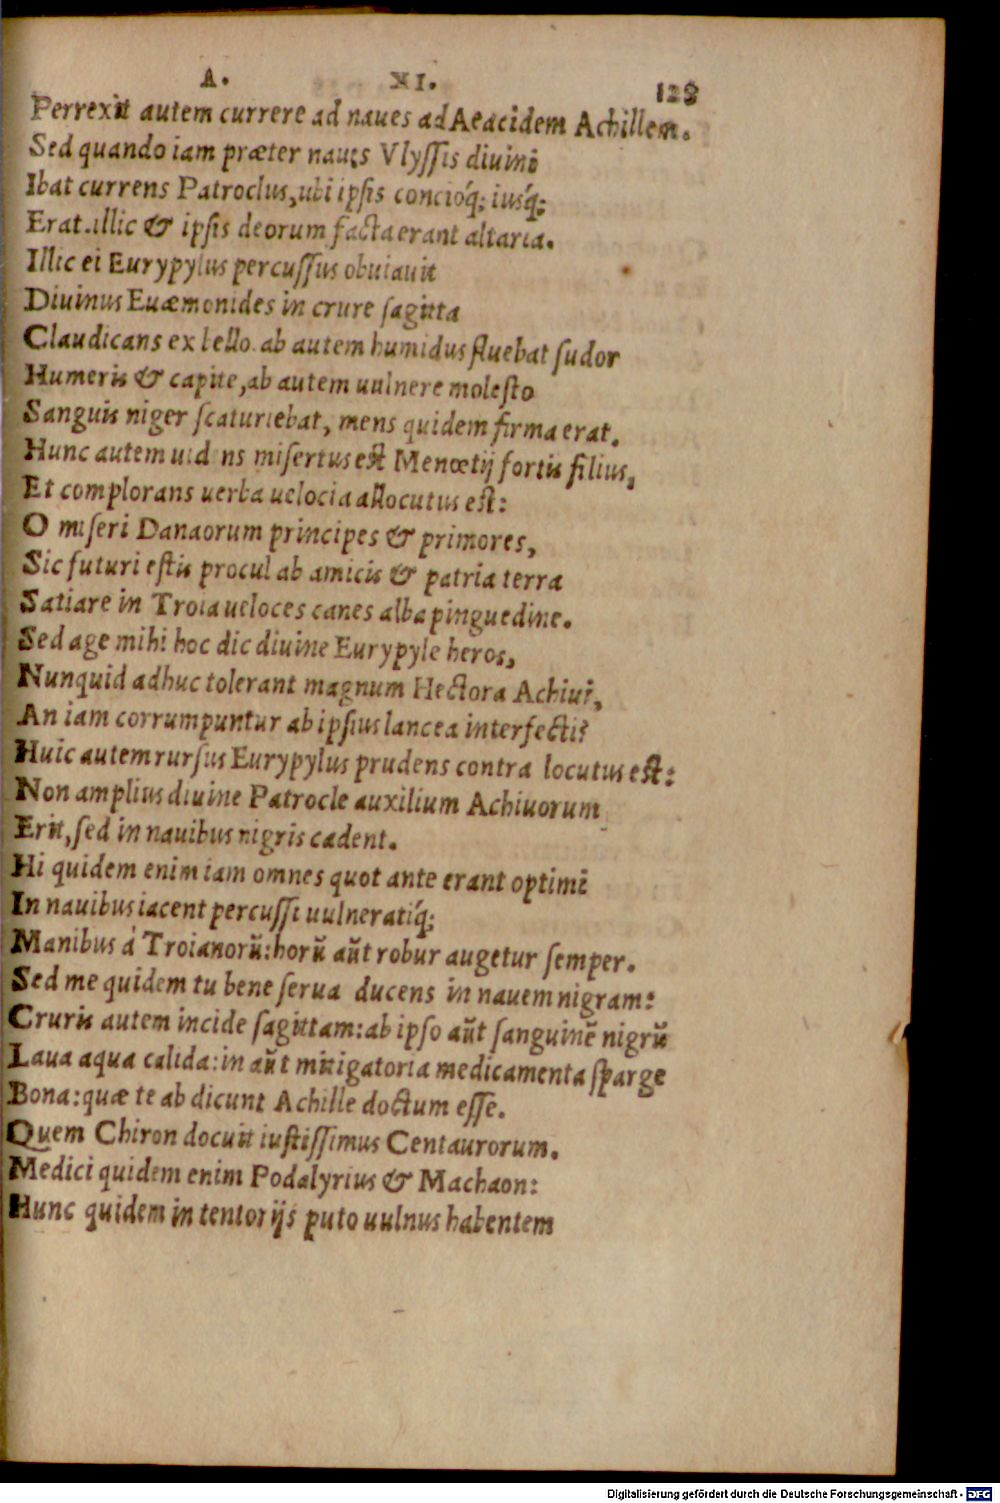 Λ. XI. 128
Perrexit autem currere ad naues ad Aeacidem Achillem.
Sed quando iam præter naues Vlyſſis diuini
Ibat currens Patroclus, ubi ipſis concióq́; iusq́;
Erat. illic & ipſis deorum facta erant altaria.
Illic ei Eurypylus percuſſus obuiauit
Diuinus Euæmonides in crure ſagitta
Claudicans ex bello. ab autem humidus fluebat ſudor
Humeris & capite, ab autem uulnere moleſto
Sanguis niger ſcaturiebat, mens quidem firma erat.
Hunc autem uidens miſertus eſt Menœtij fortis filius,
Et complorans uerba uelocia allocutus eſt:
O miſeri Danaorum principes & primores,
Sic futuri eſtis procul ab amicis & patria terra
Satiare in Troia ueloces canes alba pinguedine.
Sed age mihi hoc dic diuine Eurypyle heros,
Nunquid adhuc tolerant magnum Hectora Achiui,
An iam corrumpuntur ab ipſius lancea interfecti?
Huic autem rurſus Eurypylus prudens contra locutus eſt:
Non amplius diuine Patrocle auxilium Achiuorum
Erit, ſed in nauibus nigris cadent.
Hi quidem enim iam omnes quot ante erant optimi
In nauibus iacent percuſſi uulneratiq́;
Manibus à Troianorũ: horũ aũt robur augetur ſemper.
Sed me quidem tu bene ſerua ducens in nauem nigram:
Cruris autem incide ſagittam: ab ipſo aũt ſanguinẽ nigrũ
Laua aqua calida: in aũt mitigatoria medicamenta ſparge
Bona: quæ te ab dicunt Achille doctum eſſe.
Quem Chiron docuit iuſtiſſimus Centaurorum.
Medici quidem enim Podalyrius & Machaon:
Hunc quidem in tentorijs puto uulnus habentem
Digitalisierung gefördert durch die Deutsche Forschungsgemeinschaft - DFG